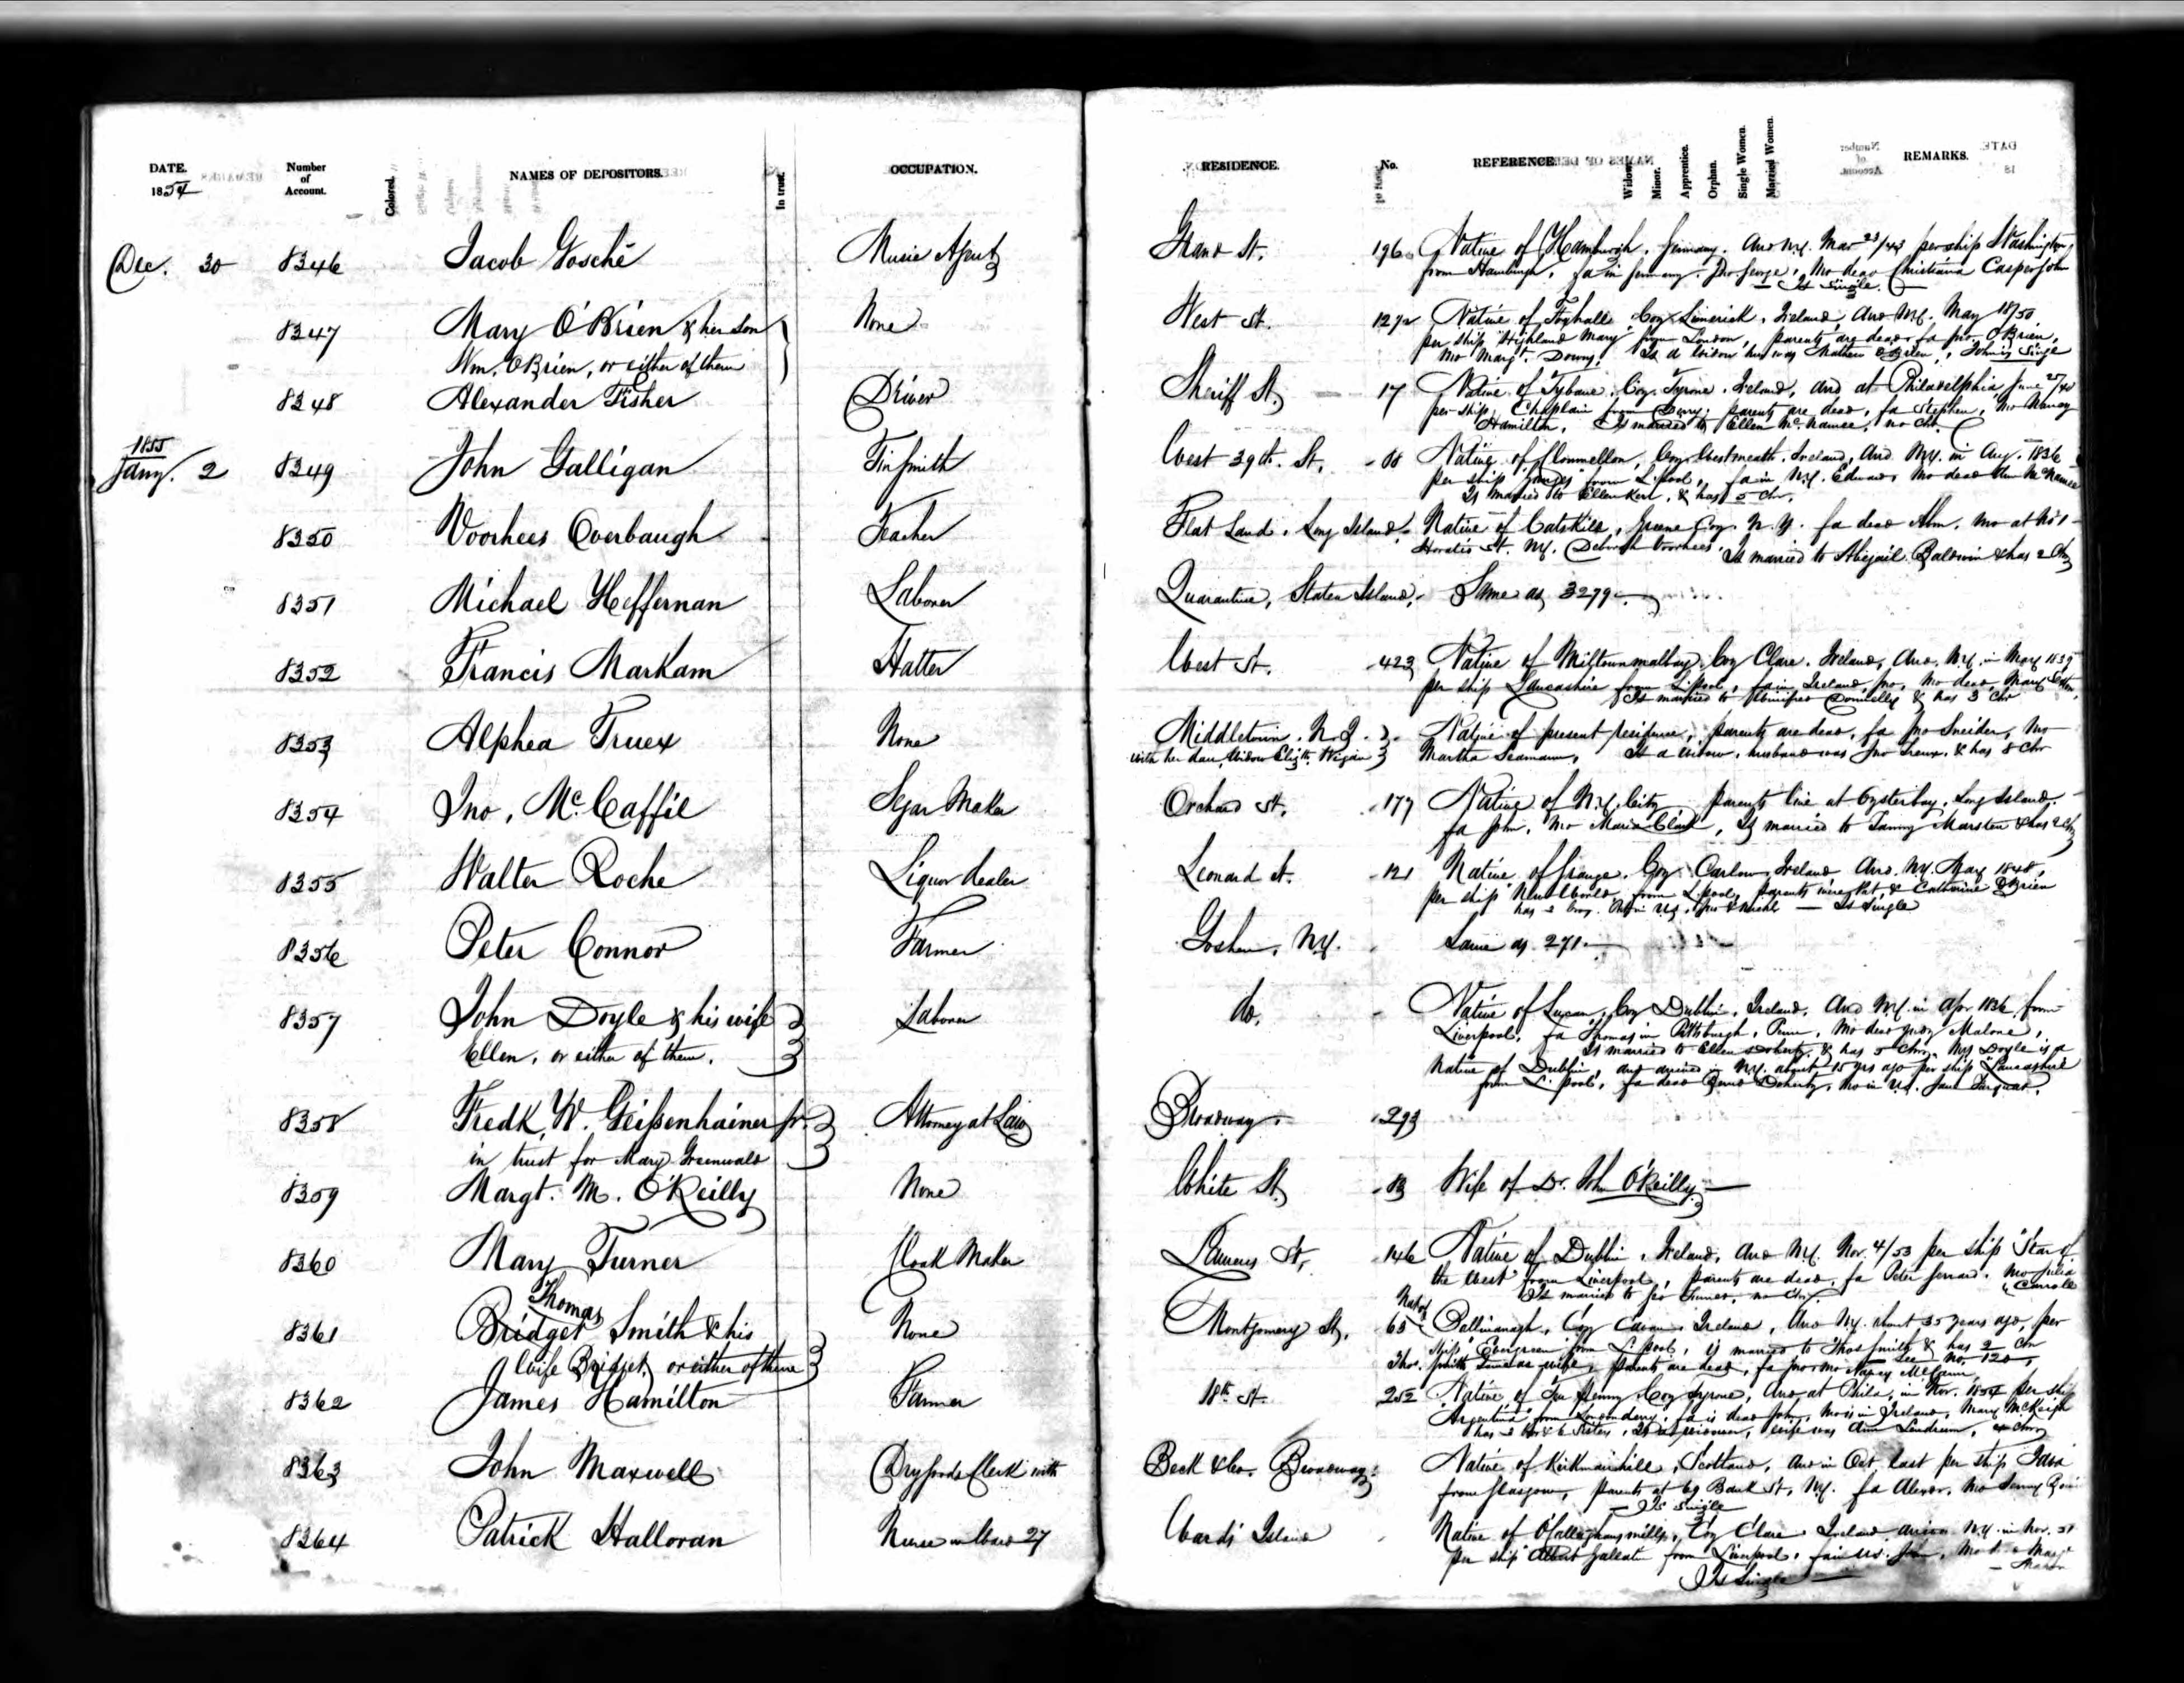 DATE. Number of Account. Colored. NAMES OF DEPOSITORS. In trust. OCCUPATION. RESIDENCE. No. REFERENCE. Widow. Minor. Apprentice. Orphan. Single Women. Married Women. REMARKS.
1854
Dec. 30 8346 Jacob Gosché Music Agent Grand St. 196 Native of Hamburgh, Germany. Arrd N.Y. Mar 23/43 per ship Washington
from Hamburgh, fa in Germany. Jno. George, Mo dead Christiana
Is single.
8347 Mary O'Brien & her son None West St. 127½ Native of Coy Limerick, Ireland, Arrd N.Y. May 18/50
Wm. O'Brien, or either of them per ship "Highland Mary" from London, parents are dead, fa Jno. O'Brien,
Mo Margt. Downy. Is a widow
8348 Alexander Fisher Driver Sheriff St. 17 Native of Coy Tyrone, Ireland, arrd at Philadelphia, June
per ship Chaplain from Derry, parents are dead, fa Stephen, Mo Nancy
Hamilton. Is married to Ellen McNamee, no chn.
1855
Jany. 2 8349 John Galligan Tin Smith West 39th. St. Native of Clonmellon, Coy Westmeath, Ireland, Arrd N.Y. in Aug. 1836
per ship Ganges from L'pool, fa in N.Y. Edward, Mo dead Ann McNamee
Is married to Ellen Kerr, & has 5 chn.
8350 Voorhees Overbaugh Teacher Flat Land, Long Island. Native of Catskill, Greene Coy. N.Y. fa dead Abm. Mo at No 1
Horatio St. N.Y. Deborah Voorhees. Is married to Abigail Baldwin & has 2 Chn
8351 Michael Heffernan Laborer Quarantine, Staten Island. Same as 3279
8352 Francis Markam Hatter West St. 423 Native of Miltownmalbay, Coy Clare, Ireland, Arrd. N.Y. in May 1839
per ship Lancashire from L'pool, fa in Ireland, Jno, Mo dead, Mary
Is married to Winifred Donnelly & has 3 Chn
8353 Alphea Truex None Middletown. N.J. Native of present residence, parents are dead, fa Jno Sneider, Mo
with her dau, Widow Elizth. Martha Seamann, Is a widow, husband was Jno Truex, & has 8 Chn
8354 Jno. McCaffil Segar Maker Orchard St. 177 Native of N.Y. City, parents live at Oysterbay, Long Island.
fa John, Mo Maria Clark, Is married to Marsten & has 2 Chn
8355 Walter Roche Liquor dealer Leonard St. 121 Native of Grange, Coy Carlow, Ireland, Arrd. N.Y. May 1848,
per ship "New World" from L'pool, parents were Pat. & Catherine O'Brien
Is Single
8356 Peter Connor Farmer Goshen, N.Y. Same as 271
8357 John Doyle & his wife Laborer do. Native of Lucan, Coy Dublin, Ireland, Arrd N.Y. in Apr 1836 from
Ellen, or either of them. Liverpool, fa Thomas in Pittsburgh, Penn, Mo dead Judy Malone,
Is married to Ellen Doherty, & has 5 chn. Mrs Doyle is a
Native of Dublin, and arrived in N.Y. about 15 yrs ago per ship "Lancashire"
from L'pool, fa dead Doherty, Mo in N.Y. Jane Farquar.
8358 Fredk. W. Geissenhainer Jr. Attorney at Law Broadway. 293
in trust for Mary Greenwald
8359 Margt. M. O'Reilly None White St. 83 Wife of Dr. John O'Reilly
8360 Mary Turner Cloak Maker Laurens St. 146 Native of Dublin, Ireland, Arrd N.Y. Nov. 4/53 per ship "Star of
the West" from Liverpool, parents are dead, fa Peter Gerrard, Mo Julia
Carroll
Is married to Turner, no chn.
8361 Thomas
Bridget Smith & his None Montgomery St. 65 Nat of Coy Cavan, Ireland, Arrd N.Y. about 35 years ago, per
wife Bridget, or either of them ship Evergreen from L'pool, is married to Thos Smith & has 2 chn
Thos. Smith parents are dead, fa Jno Mo Nancy McCann
8362 James Hamilton Farmer 18th St. 252 Native of Coy Tyrone, Arrd at Phila, in Nov. 1854 per ship
Argentina from Londonderry, fa is dead John, Mo is in Ireland, Mary McKeigh
wife was Ann Lendrum, 4 chn
8363 John Maxwell Dry goods Clerk with Beck & Co. Broadway. Native of Scotland, Arrd in Oct. last per ship
from Glasgow, parents at 69 Bank St, N.Y. fa Alexr. Mo
Is Single
8364 Patrick Halloran Nurse in Ward 27 Wards Island Native of O'Callaghansmills, Coy Clare, Ireland arrived N.Y. in Nov. 51
per ship Albert Gallatin from Liverpool, fa in U.S.
Is Single